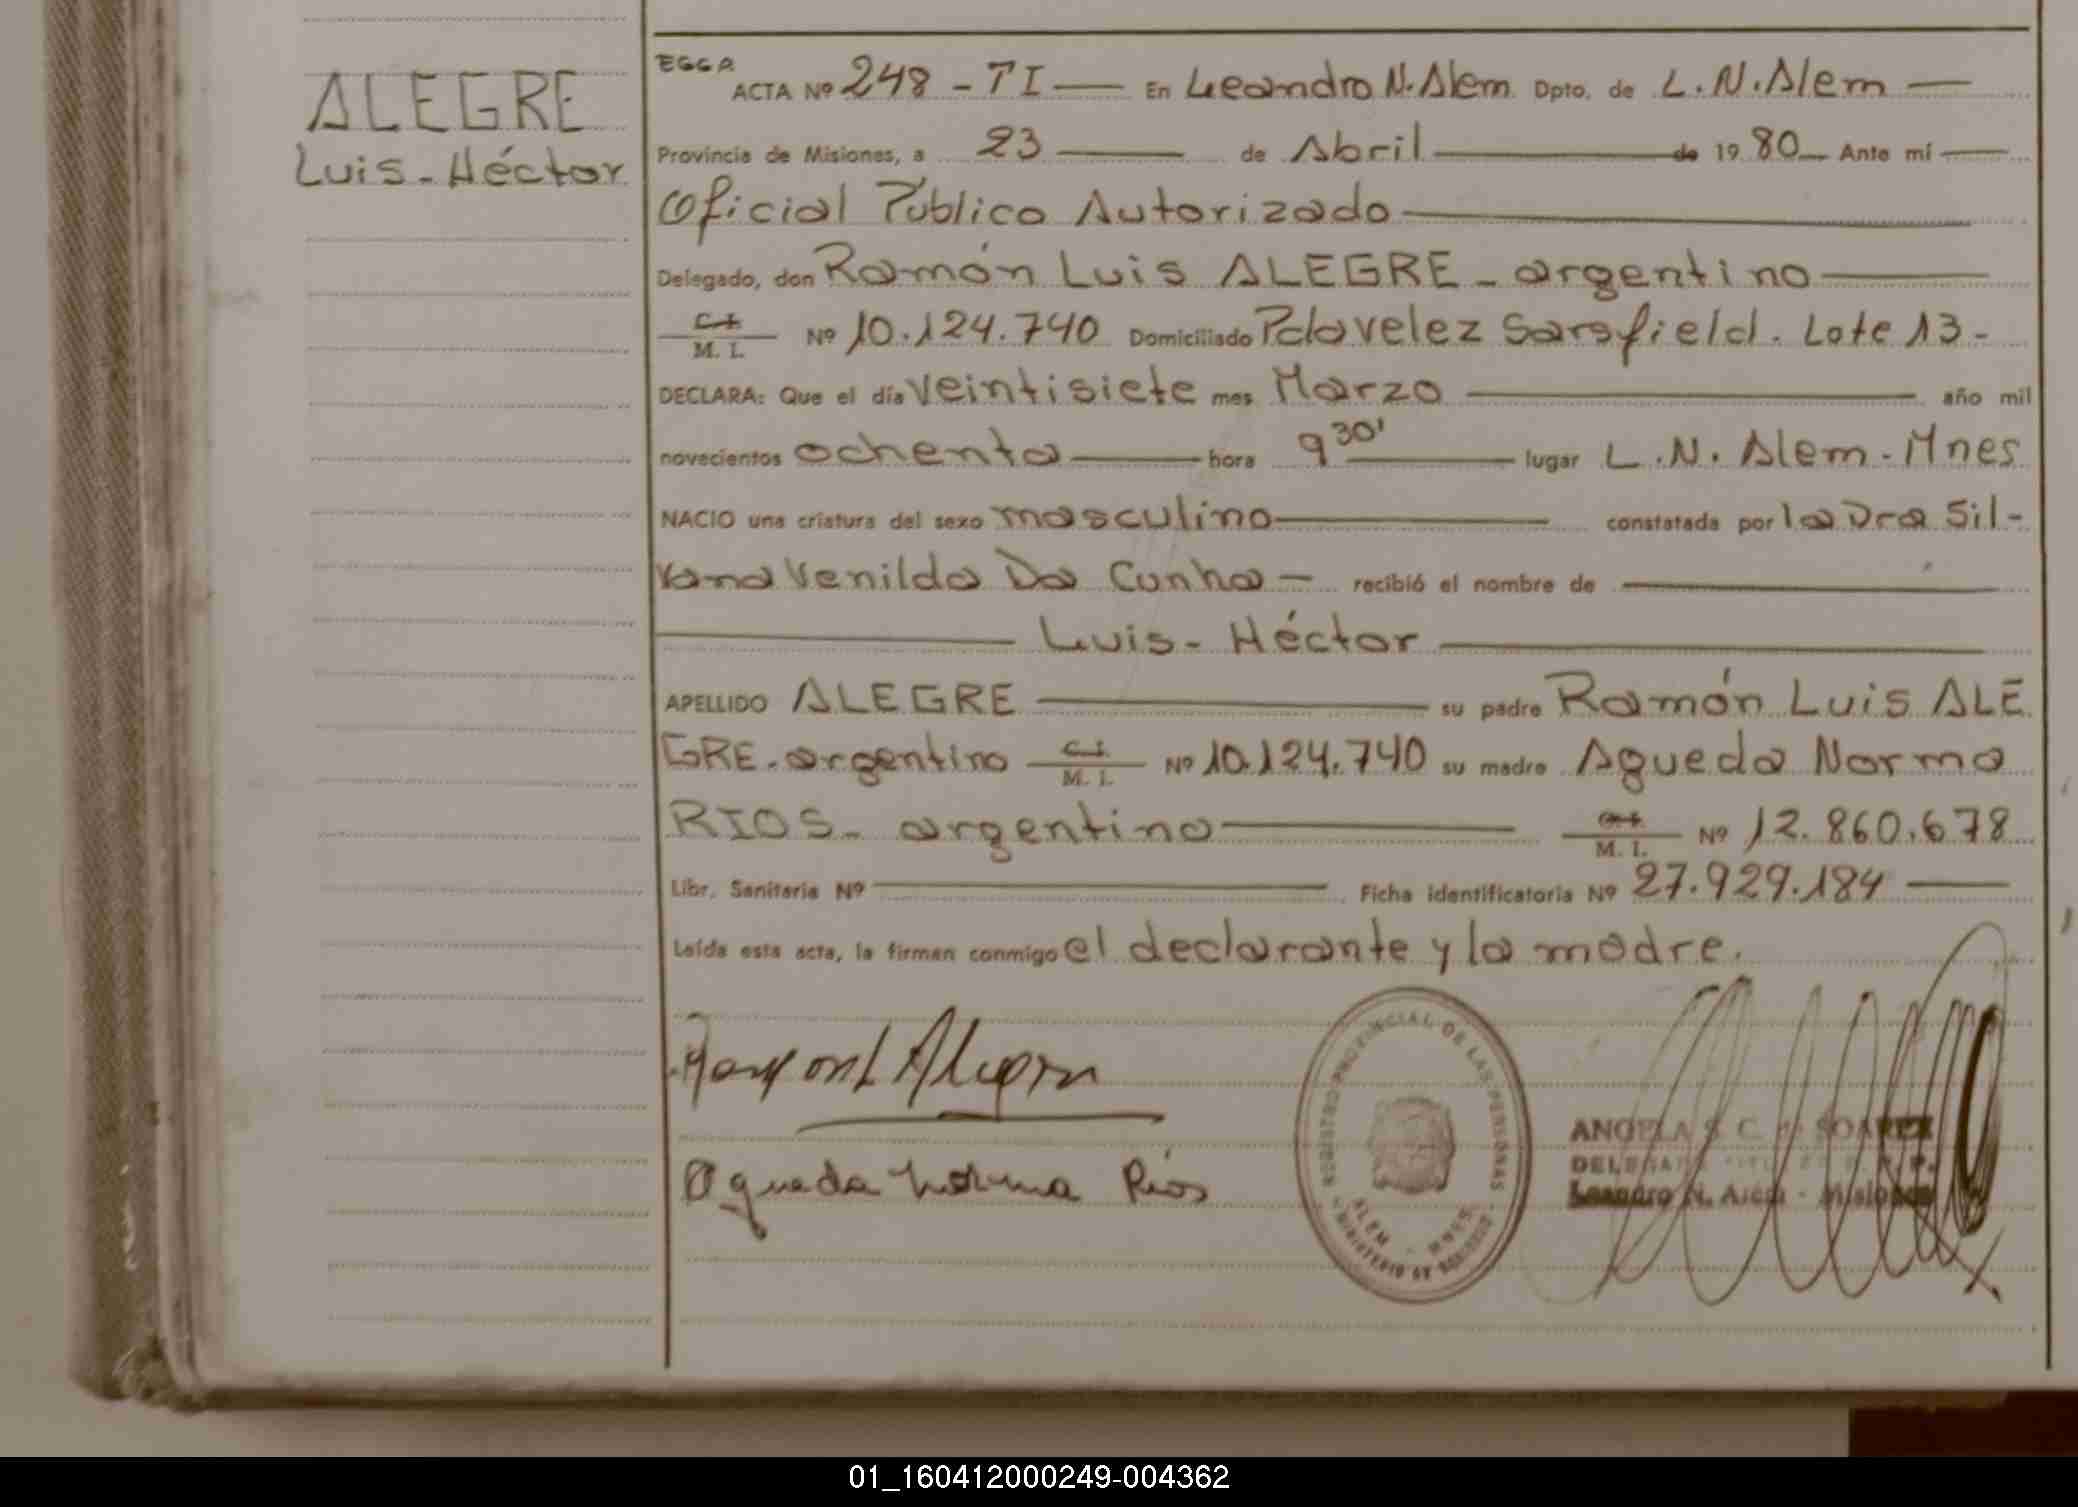 ALEGRE
Luis-Héctor
EGGA
ACTA Nº 248 - TI — En Leandro N. Alem Dpto. de L.N.Alem —
Provincia de Misiones, a 23 — de Abril — de 1980 — Ante mí —
Oficial Público Autorizado —
Delegado, don Ramón Luis ALEGRE - argentino —
C.I. / M. I. Nº 10.124.740 Domiciliado Pda Velez Sarsfield. Lote 13 -
DECLARA: Que el día veintisiete mes Marzo — año mil
novecientos ochenta — hora 9 30' — lugar L.N. Alem - Mnes
NACIO una criatura del sexo masculino — constatada por la Dra Sil-
vana Venilda Da Cunha — recibió el nombre de —
— Luis - Héctor —
APELLIDO ALEGRE — su padre Ramón Luis ALE
GRE - argentino C.I. / M. I. Nº 10.124.740 su madre Agueda Norma
RIOS - argentina — C.I. / M. I. Nº 12.860.678
Libr. Sanitaria Nº — Ficha identificatoria Nº 27.929.184 —
Leída esta acta, la firman conmigo el declarante y la madre.
Alegre
Agueda Norma Rios
REGISTRO PROVINCIAL DE LAS PERSONAS
ALEM - MNES
MINISTERIO DE GOBIERNO
ANGELA S. C. de SOAREZ
Leandro N. Alem - Misiones
01_160412000249-004362